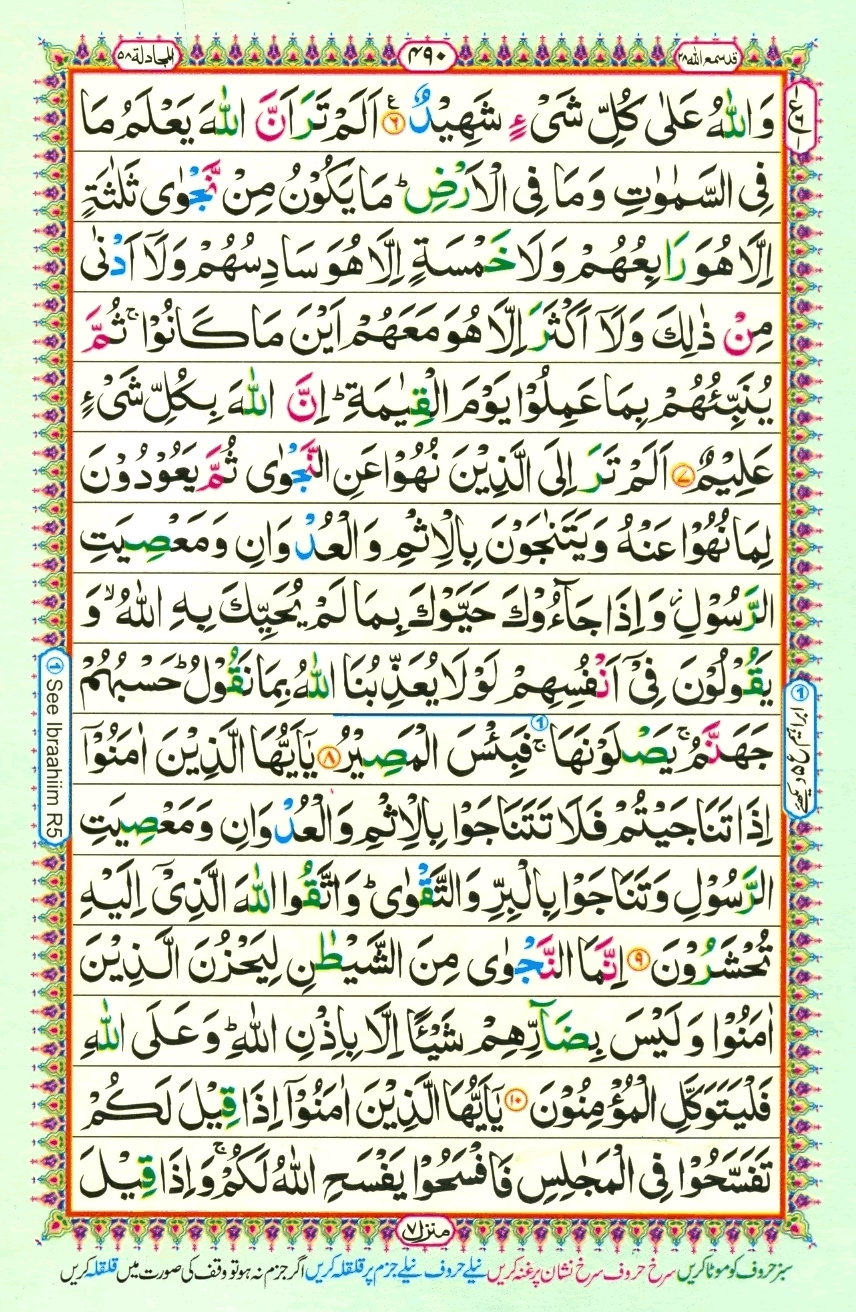 المجادلة ٥٨
٤٩٠
قد سمع الله ٢٨
وَاللّٰهُ عَلٰى كُلِّ شَىْءٍ شَهِيْدٌ ۧ ٦ اَلَمْ تَرَ اَنَّ اللّٰهَ يَعْلَمُ مَا
فِى السَّمٰوٰتِ وَ مَا فِى الْاَرْضِ ؕ مَا يَكُوْنُ مِنْ نَّجْوٰى ثَلٰثَةٍ
اِلَّا هُوَ رَابِعُهُمْ وَ لَا خَمْسَةٍ اِلَّا هُوَ سَادِسُهُمْ وَ لَاۤ اَدْنٰى
مِنْ ذٰلِكَ وَ لَاۤ اَكْثَرَ اِلَّا هُوَ مَعَهُمْ اَيْنَ مَا كَانُوْا ۚ ثُمَّ
يُنَبِّئُهُمْ بِمَا عَمِلُوْا يَوْمَ الْقِيٰمَةِ ؕ اِنَّ اللّٰهَ بِكُلِّ شَىْءٍ
عَلِيْمٌ ٧ اَلَمْ تَرَ اِلَى الَّذِيْنَ نُهُوْا عَنِ النَّجْوٰى ثُمَّ يَعُوْدُوْنَ
لِمَا نُهُوْا عَنْهُ وَ يَتَنٰجَوْنَ بِالْاِثْمِ وَ الْعُدْوَانِ وَ مَعْصِيَتِ
الرَّسُوْلِ ؗ وَ اِذَا جَآءُوْكَ حَيَّوْكَ بِمَا لَمْ يُحَيِّكَ بِهِ اللّٰهُ ۙ وَ
يَقُوْلُوْنَ فِىْۤ اَنْفُسِهِمْ لَوْ لَا يُعَذِّبُنَا اللّٰهُ بِمَا نَقُوْلُ ؕ حَسْبُهُمْ
جَهَنَّمُ ۚ يَصْلَوْنَهَا ۚ ① فَبِئْسَ الْمَصِيْرُ ٨ يٰۤاَيُّهَا الَّذِيْنَ اٰمَنُوْۤا
اِذَا تَنَاجَيْتُمْ فَلَا تَتَنَاجَوْا بِالْاِثْمِ وَ الْعُدْوَانِ وَ مَعْصِيَتِ
الرَّسُوْلِ وَ تَنَاجَوْا بِالْبِرِّ وَ التَّقْوٰى ؕ وَ اتَّقُوا اللّٰهَ الَّذِىْۤ اِلَيْهِ
تُحْشَرُوْنَ ٩ اِنَّمَا النَّجْوٰى مِنَ الشَّيْطٰنِ لِيَحْزُنَ الَّذِيْنَ
اٰمَنُوْا وَ لَيْسَ بِضَآرِّهِمْ شَيْـًٔا اِلَّا بِاِذْنِ اللّٰهِ ؕ وَ عَلَى اللّٰهِ
فَلْيَتَوَكَّلِ الْمُؤْمِنُوْنَ ١٠ يٰۤاَيُّهَا الَّذِيْنَ اٰمَنُوْۤا اِذَا قِيْلَ لَكُمْ
تَفَسَّحُوْا فِى الْمَجٰلِسِ فَافْسَحُوْا يَفْسَحِ اللّٰهُ لَكُمْ ۚ وَ اِذَا قِيْلَ
① See Ibraahiim R5
① ابراہیم ع ۵ دیکھئے
منزل ٧
سبز حروف کو موٹا کریں سرخ حروف سرخ نشان پر غنہ کریں نیلے حروف نیلے جزم پر قلقلہ کریں اگر جزم نہ ہو تو وقف کی صورت میں قلقلہ کریں